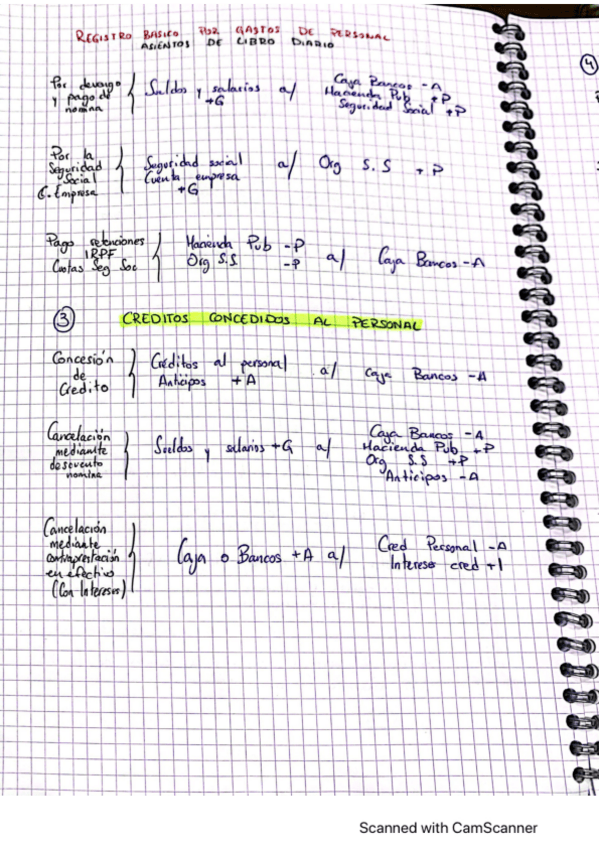 REGISTRO BÁSICO POR GASTOS DE PERSONAL
ASIENTOS DE LIBRO DIARIO
4
Por devengo
y pago de
nomina
Sueldos y salarios a/
+G
Caja Bancos -A
Hacienda Pub +P
Seguridad Social +P
Por la
Seguridad
Social
C. Empresa
Seguridad social
Cuenta empresa
+G
a/ Org S.S +P
Pago retenciones
IRPF
Cuotas Seg Soc
Hacienda Pub -P
Org S.S. -P
a/ Caja Bancos -A
3 CREDITOS CONCEDIDOS AL PERSONAL
Concesión
de
Credito
Créditos al personal
Anticipos +A
a/ Caja Bancos -A
Cancelación
mediante
descuento
nomina
Sueldos y salarios +G a/
Caja Bancos -A
Hacienda Pub +P
Org S.S +P
Anticipos -A
Cancelación
mediante
contraprestación
en efectivo
(Con Intereses)
Caja o Bancos +A a/
Cred Personal -A
Interese cred +I
Scanned with CamScanner